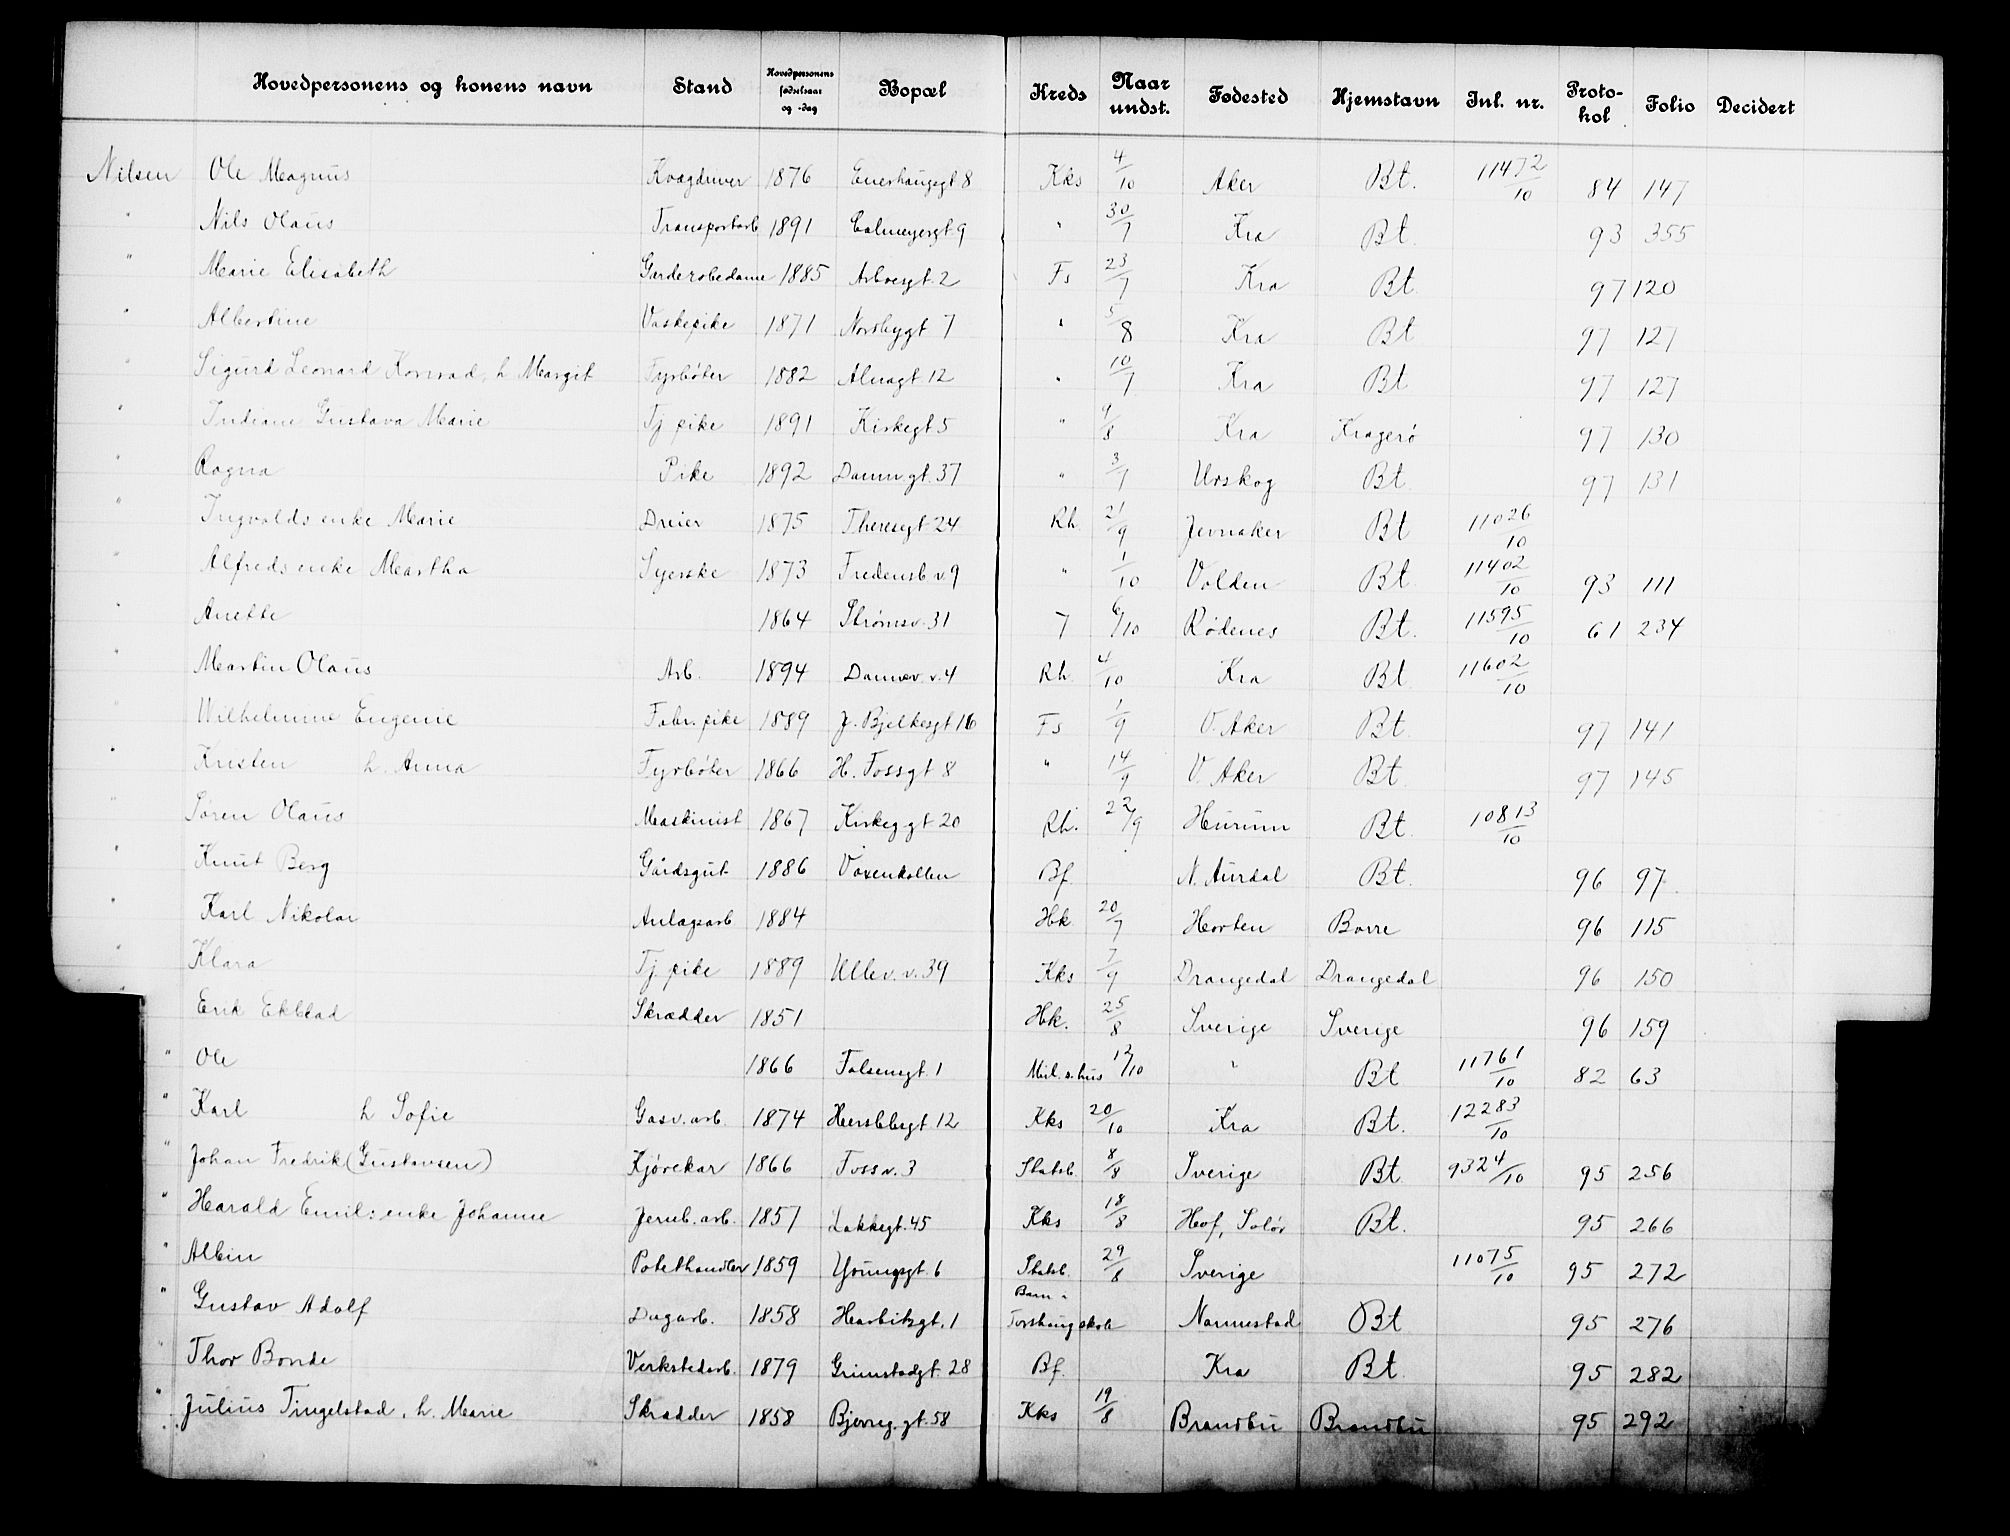 Hovedpersonens og konens navn Stand Hovedpersonens fødselsaar og -dag Bopæl Kreds Naar undst. Fødested Hjemstavn Inl. nr. Protokol Folio Decidert
Nilsen Ole Magnus Kvægdriver 1876 Enerhaugsgt 8 Kks 4/10 Aker Bt. 11472/10 84 147
" Nils Olaus Transportarb 1891 Calmeyersgt 9 " 30/7 Kra Bt. 93 355
" Marie Elisabeth Garderobedame 1885 Asbvesgt. 2 Fs 23/7 Kra Bt. 97 120
" Albertine Vaskepike 1871 Norbygt 7 " 5/8 Kra Bt 97 127
" Sigurd Leonard Konrad, h. Margit Fyrbøter 1882 Alnagt 12 " 10/7 Kra Bt 97 127
" Indiane Gustava Marie Tj. pike 1891 Kirkegt 5 " 9/8 Kra Kragerø 97 130
" Ragna Pike 1892 Damm.gt. 37 " 3/7 Urskog Bt. 97 131
" Ingvalds enke Marie Dreier 1875 Theresegt 24 Rh. 21/9 Jevnaker Bt 11026/10
" Alfreds enke Martha Syerske 1873 Fredensb. v. 9 " 1/10 Volden Bt. 11402/10 93 111
" Anette 1864 Strømsv. 31 7 6/10 Rødenes Bt. 11595/10 61 234
" Martin Olaus Arb. 1894 Dannev. v. 4 Rh 4/10 Kra Bt. 11602/10
" Wilhelmine Eugenie Fabr. pike 1889 J. Bjelkesgt 16 Fs 1/9 V. Aker Bt. 97 141
" Kristen h. Anna Fyrbøter 1866 H. Fossgt 8 " 14/9 V. Aker Bt. 97 145
" Søren Olaus Maskinist 1867 Kirkeg gt 20 Rh. 22/9 Hurum Bt. 10813/10
" Knut Berg Gårdsgut 1886 Voxenkollen Bf. N. Aurdal Bt. 96 97
" Karl Nikolai Anlægsarb 1884 Hk 20/7 Horten Borre 96 115
" Klara Tj. pike 1889 Ullev. v. 39 Kks 7/9 Drangedal Drangedal 96 150
Erik Ekblad Skrædder 1851 Hk. 25/8 Sverige Sverige 96 159
" Ole 1866 Falsensgt. 1 Mil. s. hus 12/10 " Bt 11761/10 82 63
" Karl h Sofie Gasv. arb. 1874 Herslebsgt. 12 Kks 20/10 Kra Bt. 12283/10
" Johan Fredrik (Gustavsen) Kjørekar 1866 Fossv. 3 Statsb. 8/8 Sverige Bt. 9324/10 95 256
" Harald Emils enke Johanne Jernb. arb. 1857 Lakkegt. 45 Kks 18/8 Hof, Solør Bt. 95 266
" Albin Potethandler 1859 Youngsgt. 6 Statsb. 29/8 Sverige 11075/10 95 272
" Gustav Adolf Dagarb. 1858 Herbitzgt. 1 Torshaug skole Nannestad Bt 95 276
" Thor Bonde Verkstedarb. 1879 Grimstadgt. 28 Bf. Kra Bt. 95 282
" Julius Tingelstad, h. Marie Skrædder 1858 Bjerreg. gt. 58 Kks 19/8 Brandbu Brandbu 95 292